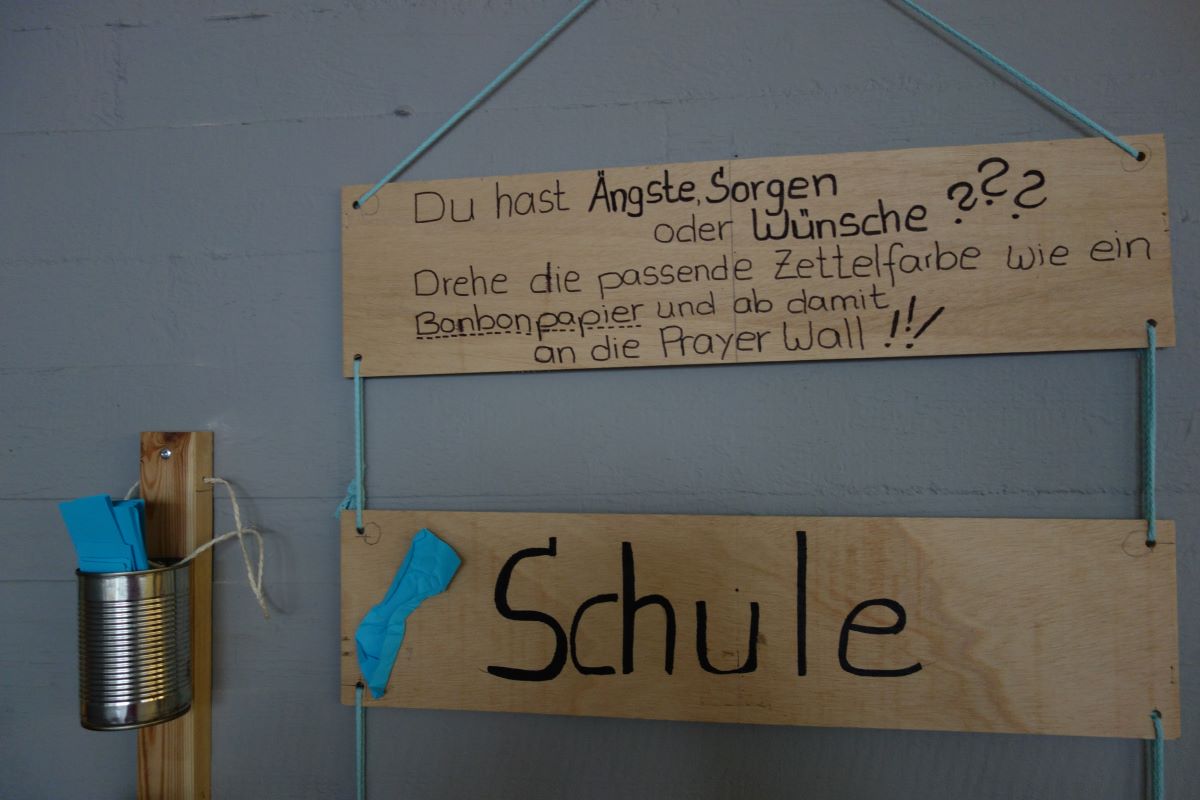 Du hast Ängste, Sorgen
oder Wünsche ???
Drehe die passende Zettelfarbe wie ein
Bonbonpapier und ab damit
an die Prayer Wall !!!
Schule